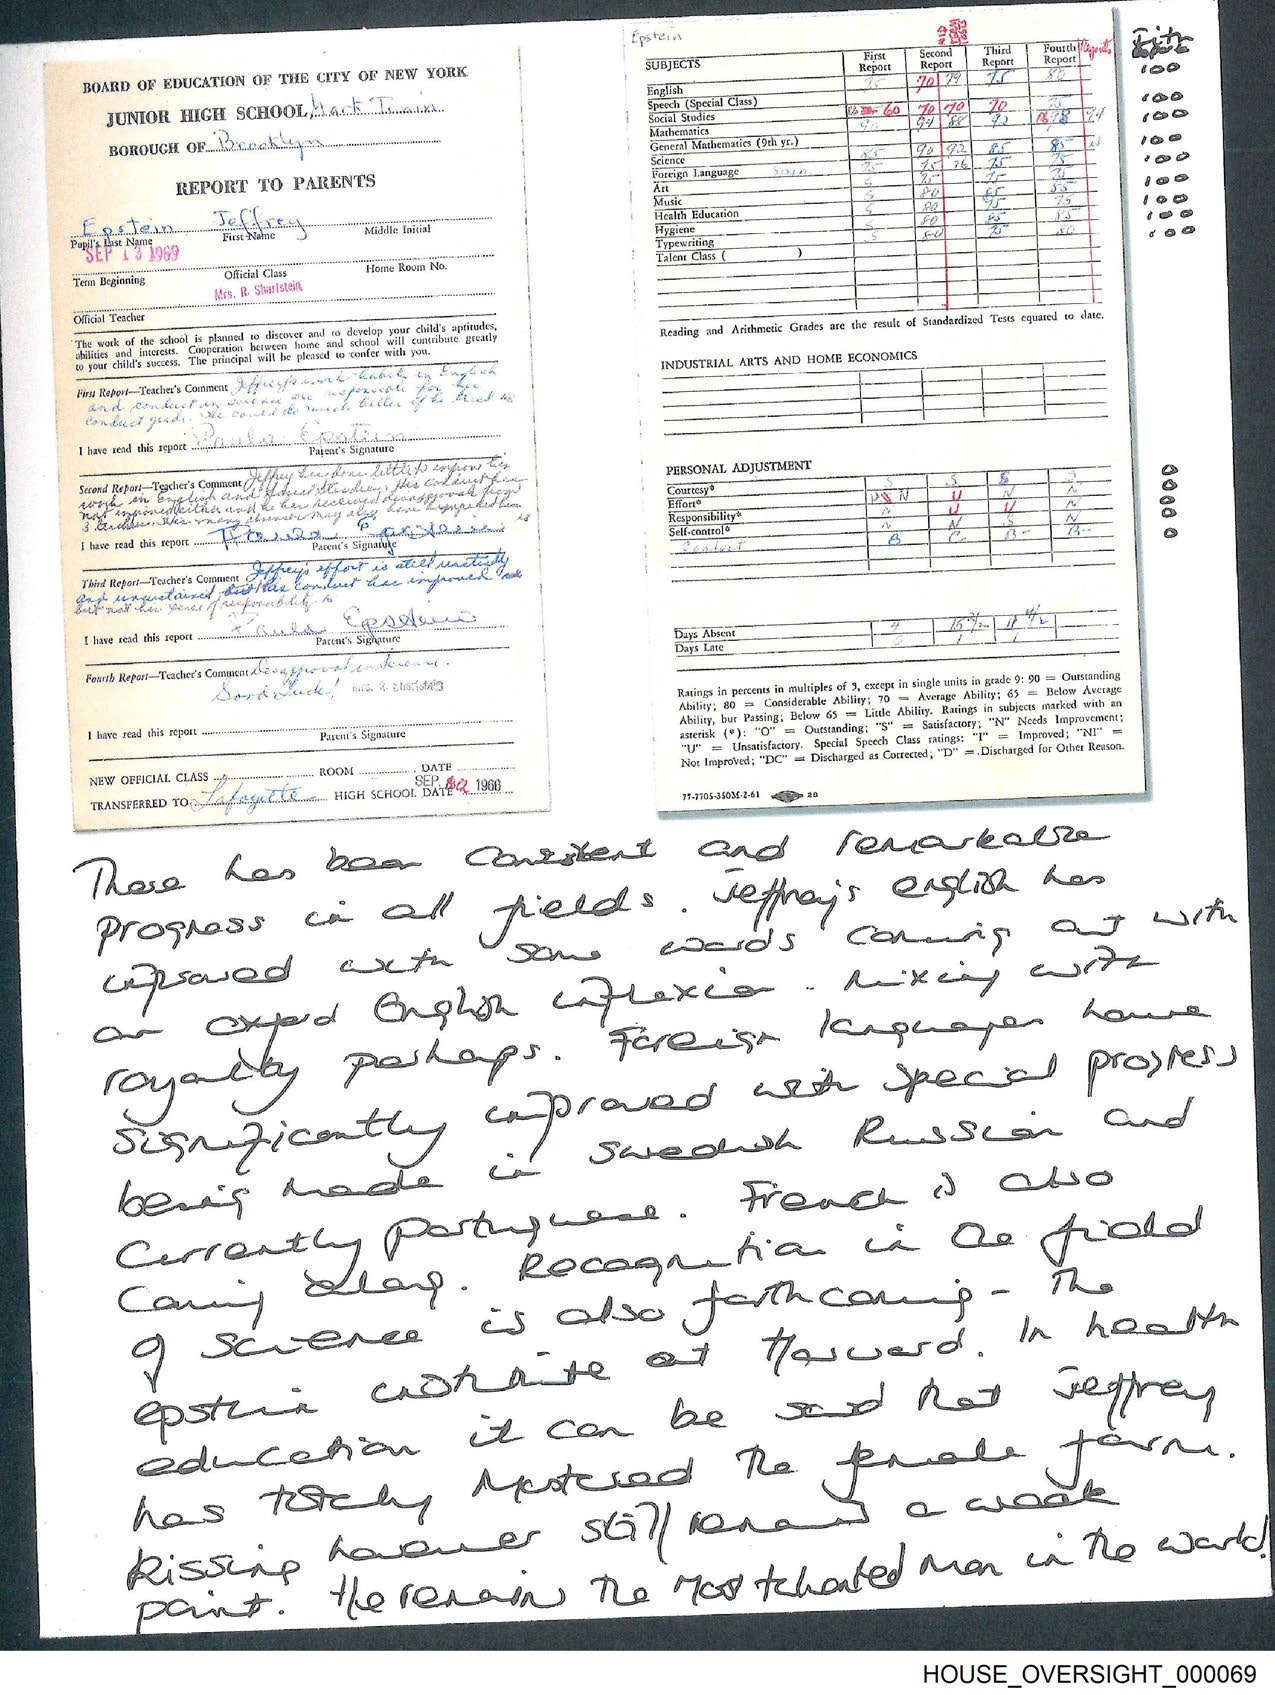 BOARD OF EDUCATION OF THE CITY OF NEW YORK
JUNIOR HIGH SCHOOL Mark Twain
BOROUGH OF Brooklyn
REPORT TO PARENTS
Epstein Jeffrey
Pupil's Last Name First Name Middle Initial
SEP 13 1969
Term Beginning Official Class Home Room No.
Mrs. R. Sharistein
Official Teacher
The work of the school is planned to discover and to develop your child's aptitudes,
abilities and interests. Cooperation between home and school will contribute greatly
to your child's success. The principal will be pleased to confer with you.
First Report—Teacher's Comment Jeffrey's work habits in English
and conduct in science are responsible for his
conduct grade. He could do much better if he tried
I have read this report Paula Epstein
Parent's Signature
Second Report—Teacher's Comment Jeffrey has done little to improve his
work in English and Social Studies. His conduct has
not improved either and he has received disapprovals from
3 teachers. His many absences may also have hampered him
I have read this report Paula Epstein
Parent's Signature
Third Report—Teacher's Comment Jeffrey's effort is still unsteady
and unsustained, but his conduct has improved
but not his sense of responsibility
I have read this report Paula Epstein
Parent's Signature
Fourth Report—Teacher's Comment Disapproval in Science.
Good Luck! Mrs. R. Sharistein
I have read this report
Parent's Signature
NEW OFFICIAL CLASS ROOM DATE
SEP 1966
TRANSFERRED TO Lafayette HIGH SCHOOL DATE
Epstein
SUBJECTS First Report Second Report Third Report Fourth Report Regents
English 70 79 75 80 100
Speech (Special Class)
Social Studies 60 70 70 70 100
Mathematics 94 88 92 98 94 100
General Mathematics (9th yr.)
Science 85 90 92 85 85 100
Foreign Language 75 75 76 75 75 100
Art S 75 75 75 100
Music S 80 85 85 100
Health Education S 80 75 75 100
Hygiene S 80 85 85
Typewriting S 80 75 80
Talent Class ( )
Reading and Arithmetic Grades are the result of Standardized Tests equated to date.
INDUSTRIAL ARTS AND HOME ECONOMICS
PERSONAL ADJUSTMENT
Courtesy* S S S S
Effort* N U N N
Responsibility* N U U N
Self-control* N N S N
Conduct B C B- B-
Days Absent 4 15 1/2 11 1/2
Days Late 1 1
Ratings in percents in multiples of 5, except in single units in grade 9: 90 = Outstanding
Ability; 80 = Considerable Ability; 70 = Average Ability; 65 = Below Average
Ability, but Passing; Below 65 = Little Ability. Ratings in subjects marked with an
asterisk (*): "O" = Outstanding; "S" = Satisfactory; "N" Needs Improvement;
"U" = Unsatisfactory. Special Speech Class ratings: "I" = Improved; "NI" =
Not Improved; "DC" = Discharged as Corrected; "D" = Discharged for Other Reason.
77-7705-350M-2-61 20
There has been consistent and remarkable
progress in all fields. Jeffrey's english has
improved with some words coming out with
an oxford English inflexion. Mixing with
royalty perhaps. Foreign languages have
significantly improved with special progress
being made in Swedish Russian and
currently portuguese. French is also
coming along. Recognition in the field
of science is also forthcoming - The
epstein institute at Harvard. In health
education it can be said that Jeffrey
has totally Mastered the female form.
Kissing however still remains a weak
point. He remains the most talented man in the world.
HOUSE_OVERSIGHT_000069